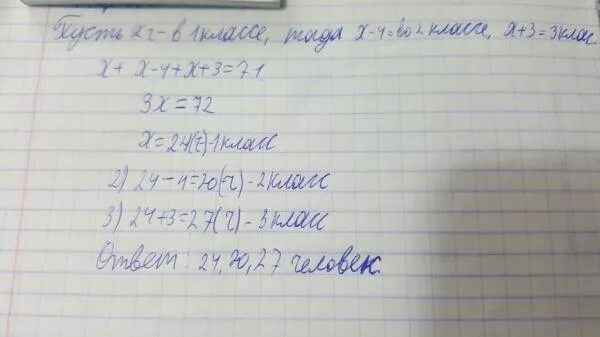 Пусть x ч - в 1 классе, тогда x-4= во 2 классе, x+3=3клас.
x+ x-4+x+3=71.
3x=72
x=24(ч)-1класс
2) 24-4=20(ч)-2класс
3) 24+3=27(ч)-3класс
Ответ: 24,20,27 человек.